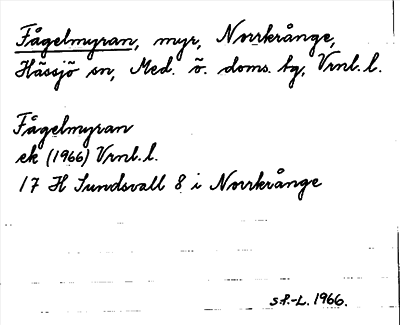 Fågelmyran, myr, Norrkrånge,
Hässjö sn, Med. ö. doms. tg, Vrnl. l.
Fågelmyran
ek (1966) Vrnl. l.
17 H Sundsvall 8 i Norrkrånge
s.P.-L. 1966.